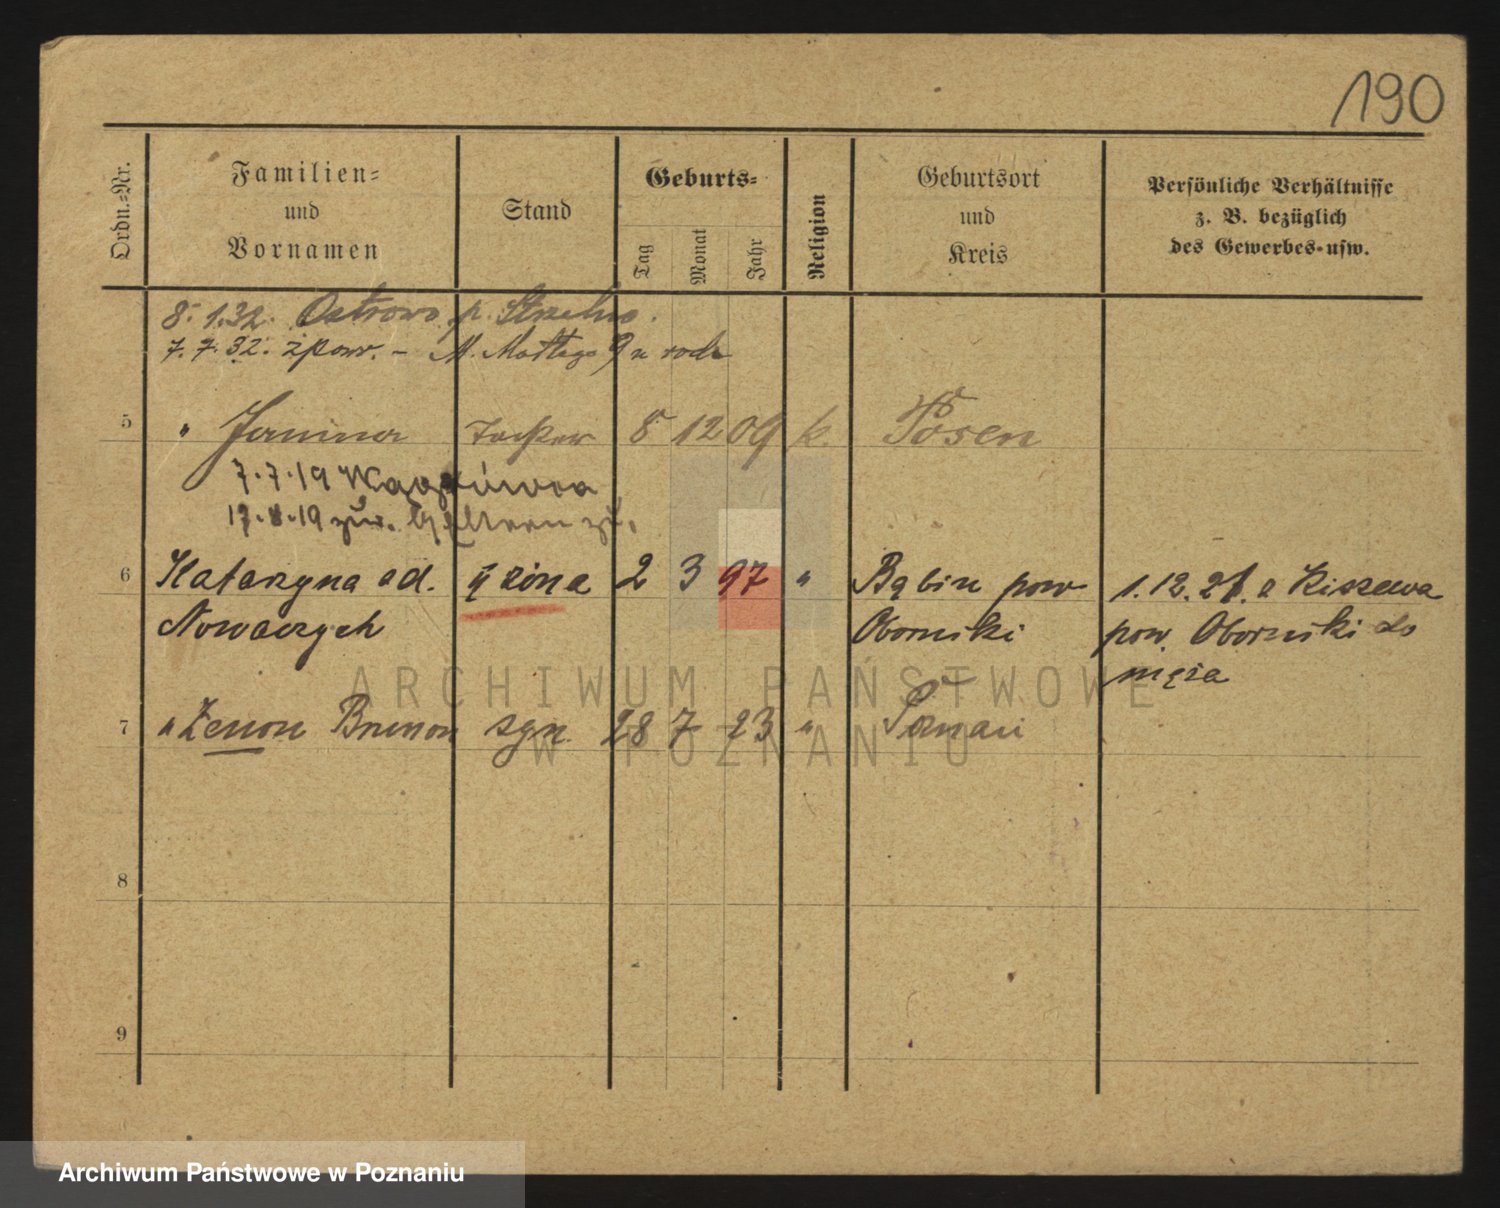 190
Ordn.-Nr.
Familien-
und
Vornamen
Stand
Geburts-
Tag
Monat
Jahr
Religion
Geburtsort
und
Kreis
Persönliche Verhältnisse
z. B. bezüglich
des Gewerbes usw.
8.1.32. Ostrowo p. Strzelno.
7.7.32. zpow. - M. 9 u
5 " Janina Tochter 8 12 09 k. Posen
7.7.19
17.8.19 zur. Eltern zk.
6 Katarzyna od. ż żona 2 3 97 " Bąbin pow 1.12.21. z Kiszewa
Nowaczych Obornski pow. Obornski do
męża
7 " Zenon Brunon syn 28 7 23 " Poznań
8
9
ARCHIWUM PAŃSTWOWE
W POZNANIU
Archiwum Państwowe w Poznaniu